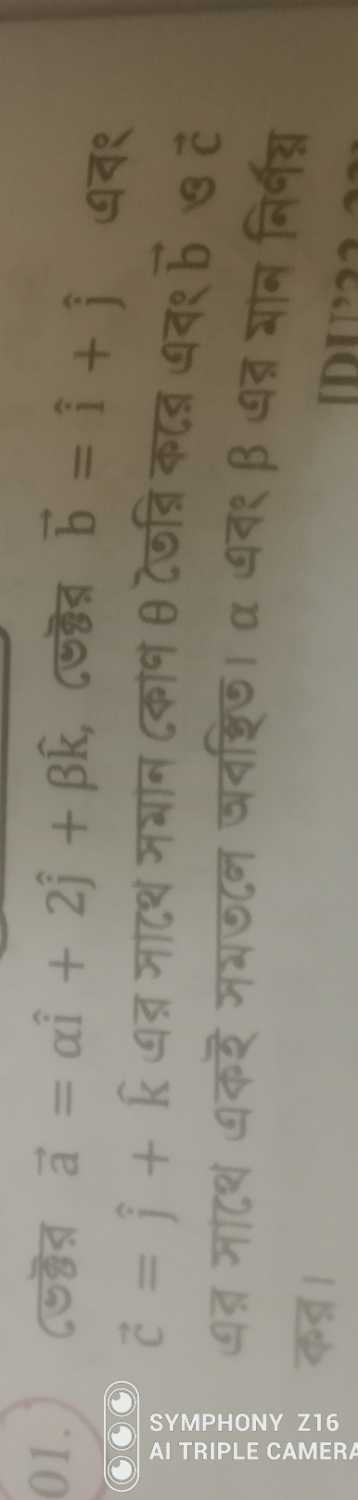 01. ভেক্টর a⃗ = αî + 2ĵ + βk̂, ভেক্টর b⃗ = î + ĵ এবং
c⃗ = ĵ + k̂ এর সাথে সমান কোণ θ তৈরি করে এবং b⃗ ও c⃗
এর সাথে একই সমতলে অবস্থিত। α এবং β এর মান নির্ণয়
কর।
SYMPHONY Z16
AI TRIPLE CAMERA